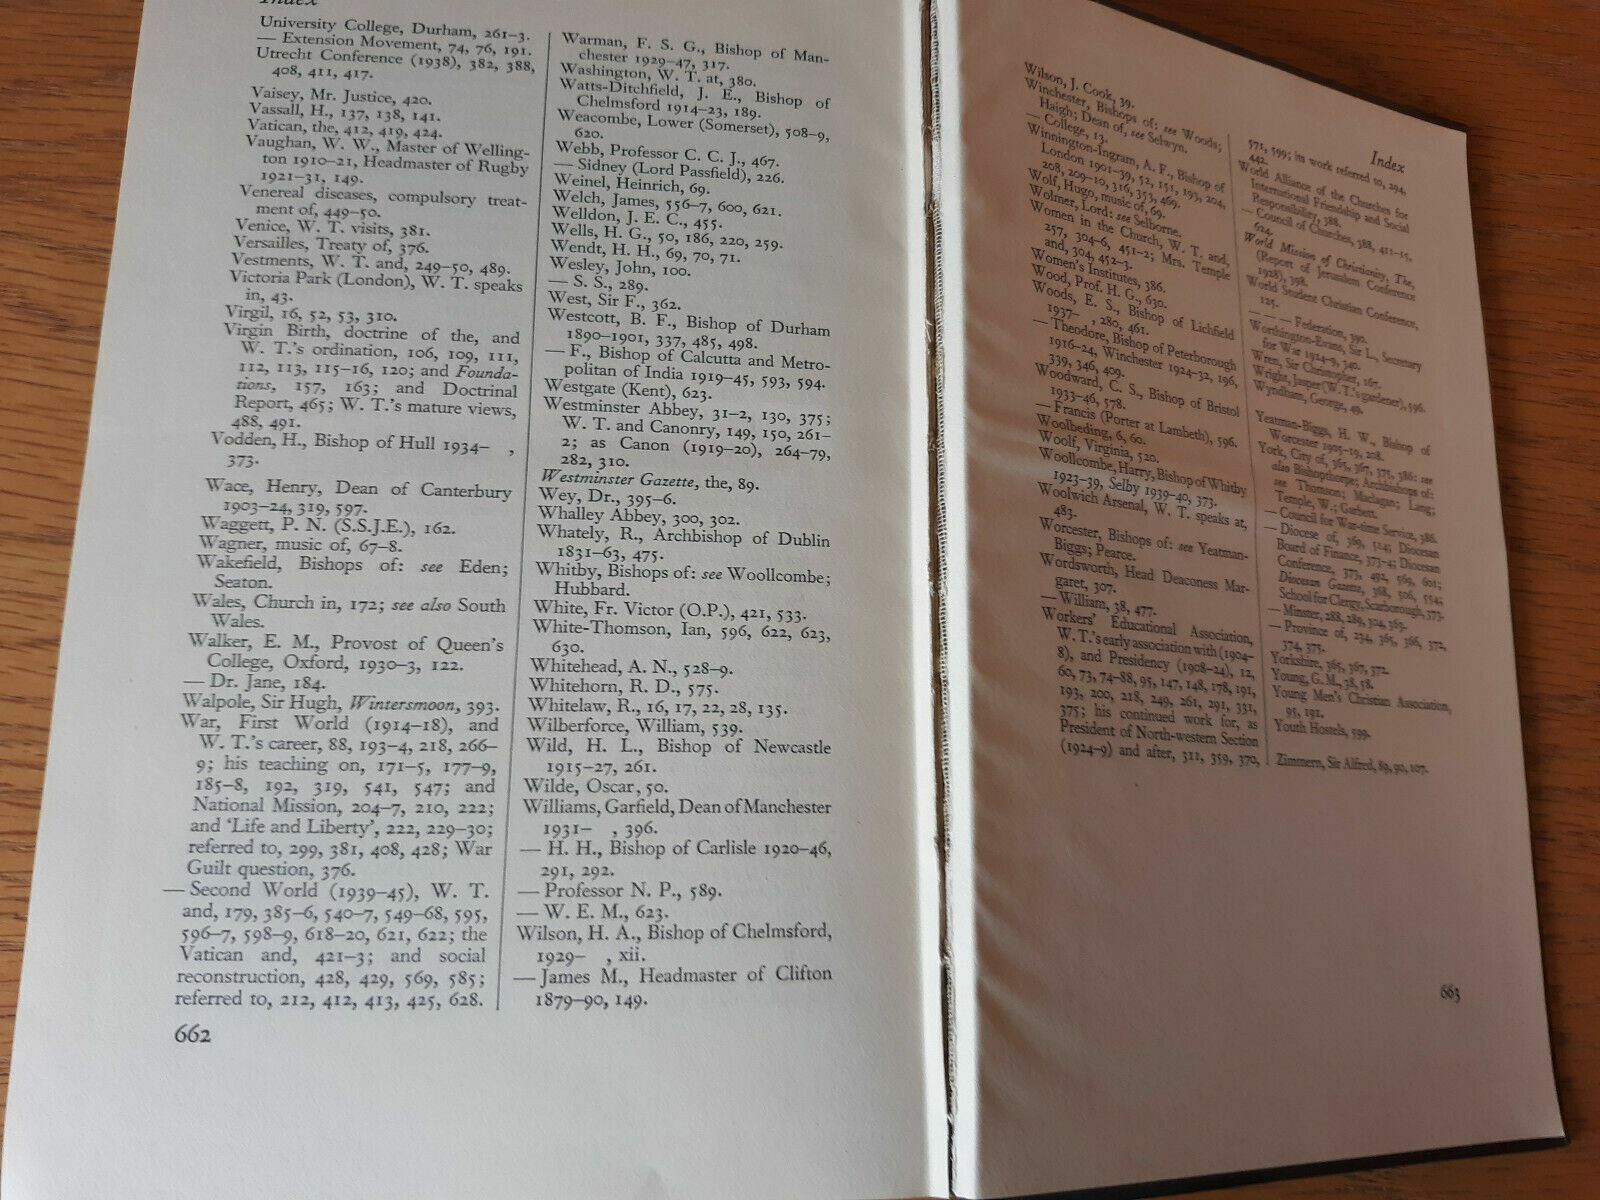 Index
University College, Durham, 261–3.
— Extension Movement, 74, 76, 191.
Utrecht Conference (1938), 382, 388,
408, 411, 417.
Vaisey, Mr. Justice, 420.
Vassall, H., 137, 138, 141.
Vatican, the, 412, 419, 424.
Vaughan, W. W., Master of Welling-
ton 1910–21, Headmaster of Rugby
1921–31, 149.
Venereal diseases, compulsory treat-
ment of, 449–50.
Venice, W. T. visits, 381.
Versailles, Treaty of, 376.
Vestments, W. T. and, 249–50, 489.
Victoria Park (London), W. T. speaks
in, 43.
Virgil, 16, 52, 53, 310.
Virgin Birth, doctrine of the, and
W. T.'s ordination, 106, 109, 111,
112, 113, 115–16, 120; and Founda-
tions, 157, 163; and Doctrinal
Report, 465; W. T.'s mature views,
488, 491.
Vodden, H., Bishop of Hull 1934– ,
373.
Wace, Henry, Dean of Canterbury
1903–24, 319, 597.
Waggett, P. N. (S.S.J.E.), 162.
Wagner, music of, 67–8.
Wakefield, Bishops of: see Eden;
Seaton.
Wales, Church in, 172; see also South
Wales.
Walker, E. M., Provost of Queen's
College, Oxford, 1930–3, 122.
— Dr. Jane, 184.
Walpole, Sir Hugh, Wintersmoon, 393.
War, First World (1914–18), and
W. T.'s career, 88, 193–4, 218, 266–
9; his teaching on, 171–5, 177–9,
185–8, 192, 319, 541, 547; and
National Mission, 204–7, 210, 222;
and 'Life and Liberty', 222, 229–30;
referred to, 299, 381, 408, 428; War
Guilt question, 376.
— Second World (1939–45), W. T.
and, 179, 385–6, 540–7, 549–68, 595,
596–7, 598–9, 618–20, 621, 622; the
Vatican and, 421–3; and social
reconstruction, 428, 429, 569, 585;
referred to, 212, 412, 413, 425, 628.
662
Warman, F. S. G., Bishop of Man-
chester 1929–47, 317.
Washington, W. T. at, 380.
Watts-Ditchfield, J. E., Bishop of
Chelmsford 1914–23, 189.
Weacombe, Lower (Somerset), 508–9,
620.
Webb, Professor C. C. J., 467.
— Sidney (Lord Passfield), 226.
Weinel, Heinrich, 69.
Welch, James, 556–7, 600, 621.
Welldon, J. E. C., 455.
Wells, H. G., 50, 186, 220, 259.
Wendt, H. H., 69, 70, 71.
Wesley, John, 100.
— S. S., 289.
West, Sir F., 362.
Westcott, B. F., Bishop of Durham
1890–1901, 337, 485, 498.
— F., Bishop of Calcutta and Metro-
politan of India 1919–45, 593, 594.
Westgate (Kent), 623.
Westminster Abbey, 31–2, 130, 375;
W. T. and Canonry, 149, 150, 261–
2; as Canon (1919–20), 264–79,
282, 310.
Westminster Gazette, the, 89.
Wey, Dr., 395–6.
Whalley Abbey, 300, 302.
Whately, R., Archbishop of Dublin
1831–63, 475.
Whitby, Bishops of: see Woollcombe;
Hubbard.
White, Fr. Victor (O.P.), 421, 533.
White-Thomson, Ian, 596, 622, 623,
630.
Whitehead, A. N., 528–9.
Whitehorn, R. D., 575.
Whitelaw, R., 16, 17, 22, 28, 135.
Wilberforce, William, 539.
Wild, H. L., Bishop of Newcastle
1915–27, 261.
Wilde, Oscar, 50.
Williams, Garfield, Dean of Manchester
1931– , 396.
— H. H., Bishop of Carlisle 1920–46,
291, 292.
— Professor N. P., 589.
— W. E. M., 623.
Wilson, H. A., Bishop of Chelmsford,
1929– , xii.
— James M., Headmaster of Clifton
1879–90, 149.
Index
Wilson, J. Cook, 39.
Winchester, Bishops of: see Woods;
Haigh; Dean of, see Selwyn.
— College, 13.
Winnington-Ingram, A. F., Bishop of
London 1901–39, 52, 151, 193, 204,
208, 209–10, 316, 353, 469.
Wolf, Hugo, music of, 69.
Wolmer, Lord: see Selborne.
Women in the Church, W. T. and,
257, 304–6, 451–2; Mrs. Temple
and, 304, 452–3.
Women's Institutes, 386.
Wood, Prof. H. G., 630.
Woods, E. S., Bishop of Lichfield
1937– , 280, 461.
— Theodore, Bishop of Peterborough
1916–24, Winchester 1924–32, 196,
339, 346, 409.
Woodward, C. S., Bishop of Bristol
1933–46, 578.
— Francis (Porter at Lambeth), 596.
Woolbeding, 6, 60.
Woolf, Virginia, 520.
Woollcombe, Harry, Bishop of Whitby
1923–39, Selby 1939–40, 373.
Woolwich Arsenal, W. T. speaks at,
483.
Worcester, Bishops of: see Yeatman-
Biggs; Pearce.
Wordsworth, Head Deaconess Mar-
garet, 307.
— William, 38, 477.
Workers' Educational Association,
W. T.'s early association with (1904–
8), and Presidency (1908–24), 12,
60, 73, 74–88, 95, 147, 148, 178, 191,
193, 200, 218, 249, 261, 291, 331,
375; his continued work for, as
President of North-western Section
(1924–9) and after, 311, 359, 370,
571, 599; its work referred to, 294,
442.
World Alliance of the Churches for
International Friendship and Social
Responsibility, 388.
— Council of Churches, 388, 411–15,
624.
World Mission of Christianity, The,
(Report of Jerusalem Conference
1928), 398.
World Student Christian Conference,
125.
— — — Federation, 390.
Worthington-Evans, Sir L., Secretary
for War 1924–9, 340.
Wren, Sir Christopher, 167.
Wright, Jasper (W. T.'s gardener), 596.
Wyndham, George, 49.
Yeatman-Biggs, H. W., Bishop of
Worcester 1905–19, 208.
York, City of, 365, 367, 375, 386: see
also Bishopthorpe; Archbishops of:
see Thomson; Maclagan; Lang;
Temple, W.; Garbett.
— Council for War-time Service, 386.
— Diocese of, 369, 514; Diocesan
Board of Finance, 373–4; Diocesan
Conference, 375, 492, 569, 601;
Diocesan Gazette, 368, 506, 554;
School for Clergy, Scarborough, 373.
— Minster, 288, 289, 304, 369.
— Province of, 234, 365, 366, 372,
374, 375.
Yorkshire, 365, 367, 372.
Young, G. M., 38, 58.
Young Men's Christian Association,
95, 191.
Youth Hostels, 599.
Zimmern, Sir Alfred, 89, 90, 107.
663